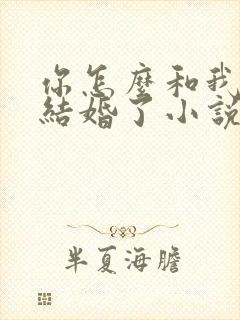 你怎麼和我
結婚了小說
半夏海膽